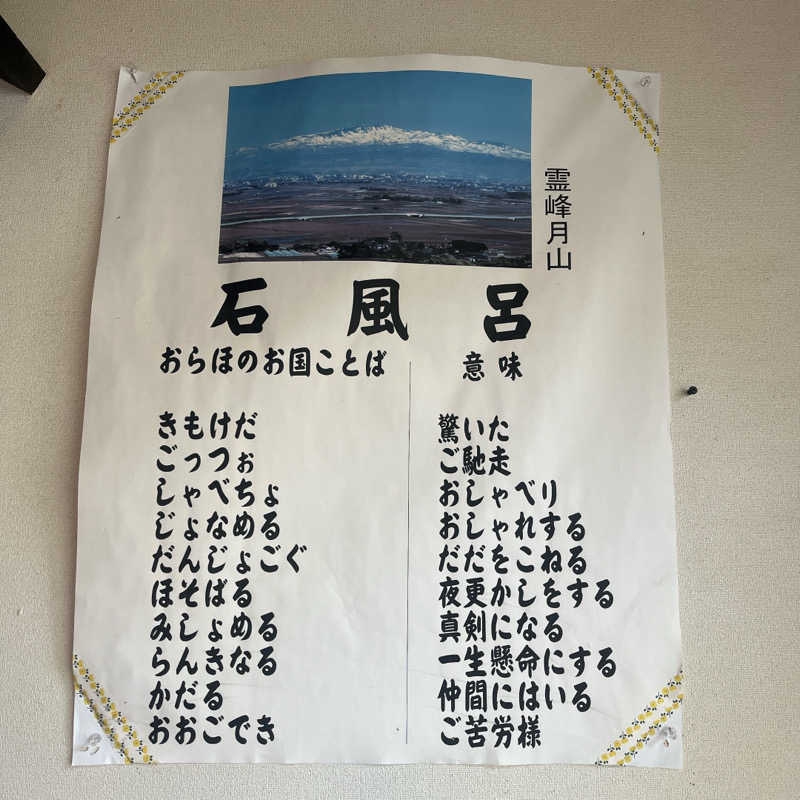 霊峰月山
石風呂
おらほのお国ことば 意味
きもけだ 驚いた
ごっつぉ ご馳走
しゃべちょ おしゃべり
じょなめる おしゃれする
だんじょごぐ だだをこねる
ほそばる 夜更かしをする
みしょめる 真剣になる
らんきなる 一生懸命にする
かだる 仲間にはいる
おおごでき ご苦労様